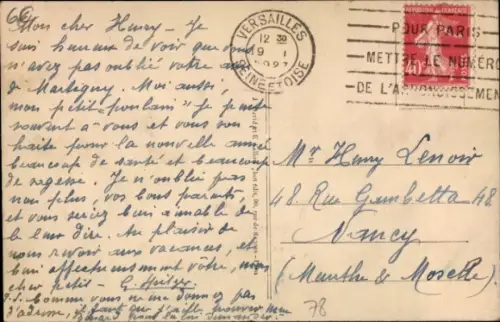 66
Mon cher Henry - Je
suis heureux de voir que vous
n'avez pas oublié votre
de Martigny. Moi aussi,
mon petit "poulain" Je pense
souvent à vous et vous sou-
haite pour la nouvelle année
beaucoup de santé et beaucoup
de sagesse. Je n'oublie pas
non plus, vos bons parents,
et vous seriez bien aimable de
le leur dire. Au plaisir de
nous revoir aux vacances, et
bien affectueusement vôtre, mon
cher petit - G.
P.S. Comme vous ne me donnez pas
l'adresse, il faut que j'aille trouver M
pour la lui demander.
VERSAILLES
12
19 I
SEINE ET OISE
POUR PARIS
METTRE LE NUMÉRO
DE L'ARRONDISSEMENT
40
Mr Henry Lenoir
48 Rue Gambetta 48
Nancy
(Meurthe & Moselle)
78